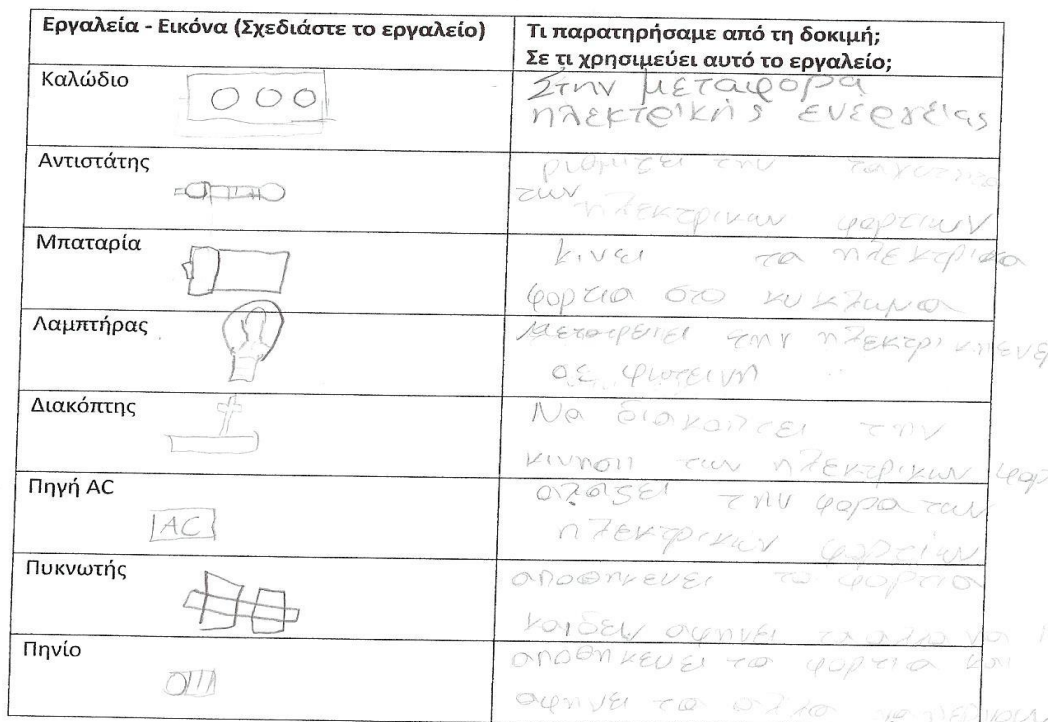 Εργαλεία - Εικόνα (Σχεδιάστε το εργαλείο)
Τι παρατηρήσαμε από τη δοκιμή;
Σε τι χρησιμεύει αυτό το εργαλείο;
Καλώδιο
Στην μεταφορα
ηλεκτρικής ενέργειας
Αντιστάτης
ριθμιζει την ταχυτητα
των
ηλεκτρικων φορτιων
Μπαταρία
κινει τα ηλεκτρικα
φορτια στο κυκλωμα
Λαμπτήρας
την
σε φωτεινη
Διακόπτης
Να διακοπτει την
κινηση των ηλεκτρικων φορ
Πηγή AC
AC
αλαζει την φορα των
ηλεκτρικών φορτίων
Πυκνωτής
αποθηκευει τα φορτια
και δεν αφηνει τα αλλα να
Πηνίο
αποθηκευει τα φορτια και
αφηνει τα αλλα να